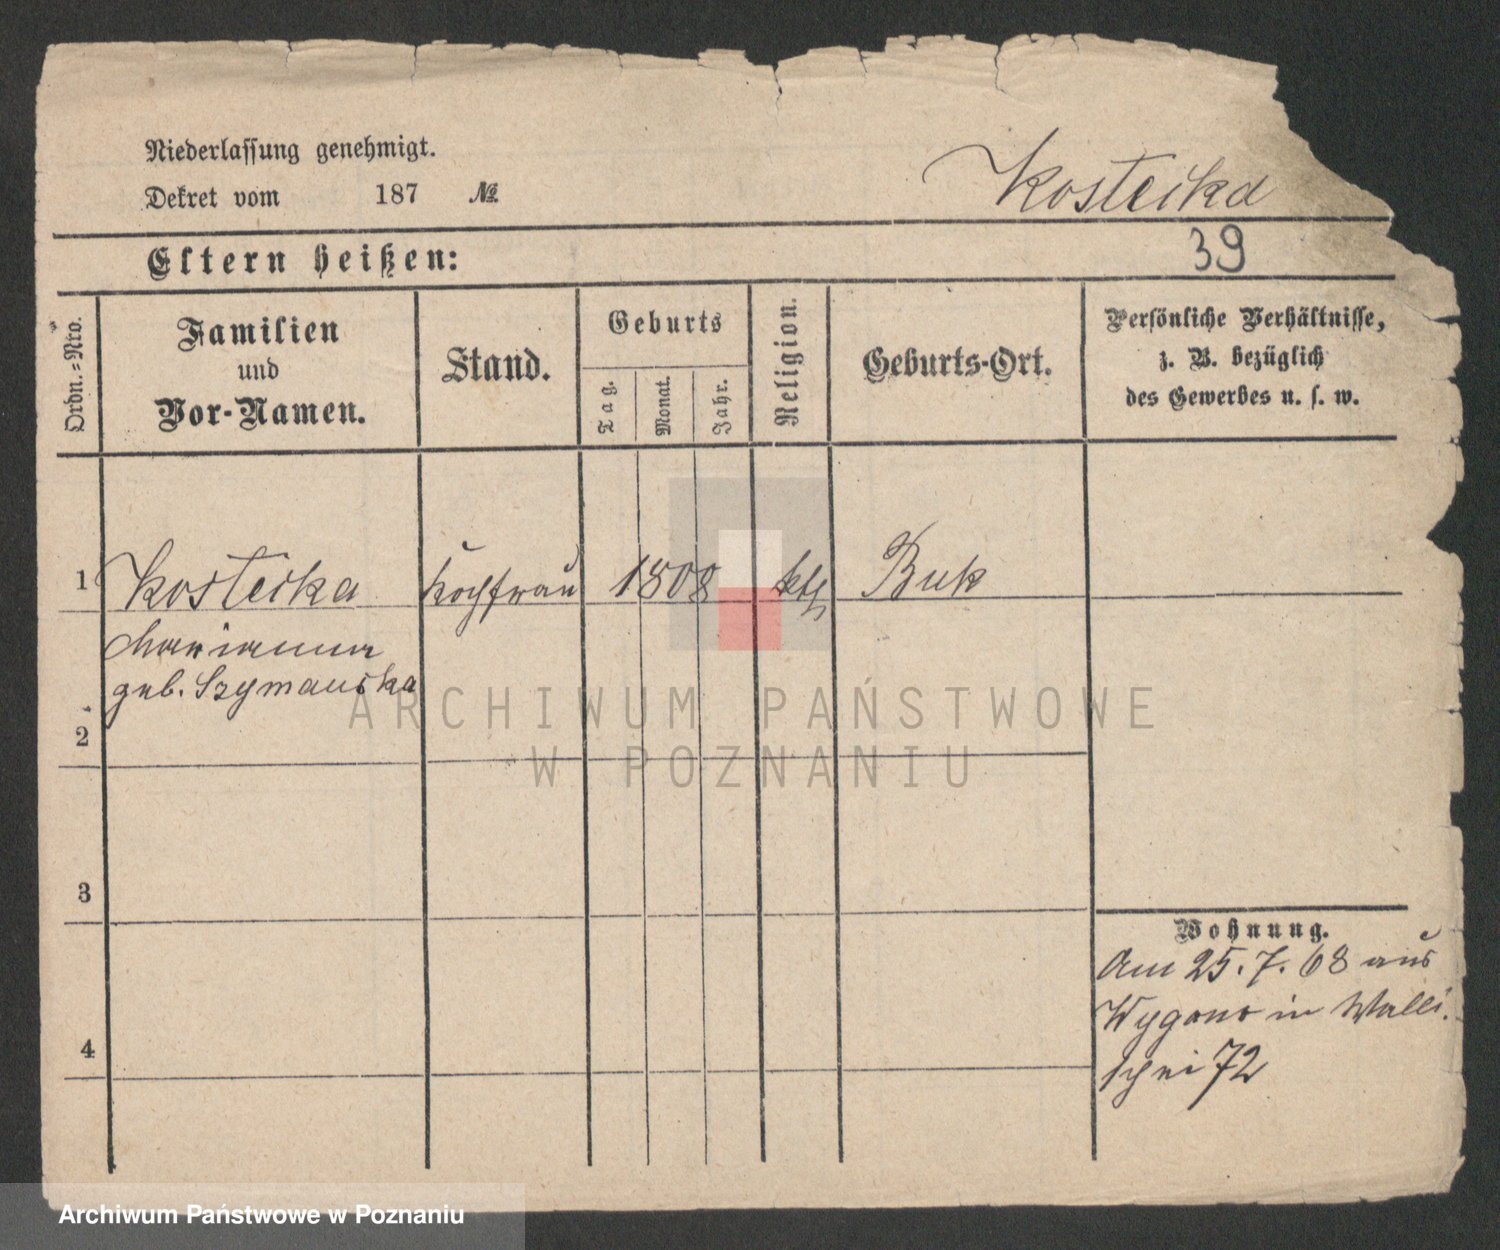 Niederlassung genehmigt.
Dekret vom 187 №
Kosteika
Eltern heißen:
39
Ordn.-Nro.
Familien
und
Vor-Namen.
Stand.
Geburts
Tag.
Monat.
Jahr.
Religion.
Geburts-Ort.
Persönliche Verhältnisse,
z. B. bezüglich
des Gewerbes u. s. w.
1 Kosteika Kochfrau 1808 kth Buk
Marianna
geb. Szymanska
2
3
4
Wohnung.
Am 25. 7. 68 aus
Wygono in Walli-
schei 72
ARCHIWUM PAŃSTWOWE
W POZNANIU
Archiwum Państwowe w Poznaniu